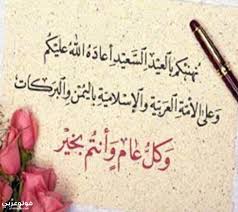 نهنئكم بالعيد السَّعيد أعادَهُ اللهُ عليكم
وَعلى الأمّة العَربيّة والإسلاميّة باليُمْن والبَركات
وَكلُّ عَام وَأنتُم بخَيْر
فوتوعربي